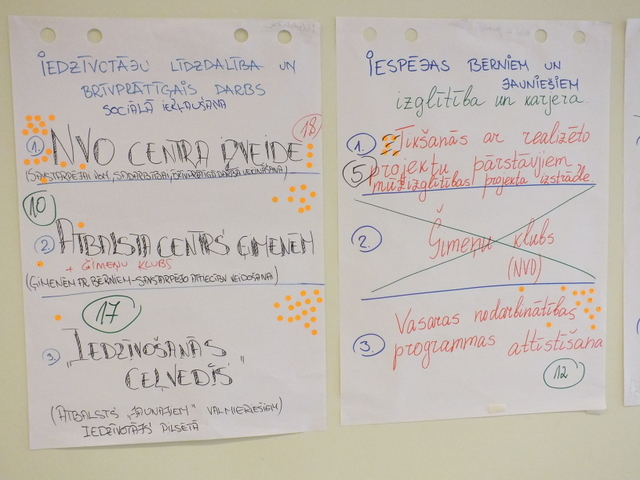 IEDZĪVOTĀJU LĪDZDALĪBA UN
BRĪVPRĀTĪGAIS DARBS
SOCIĀLĀ IEKĻAUŠANA
18
1. NVO CENTRA IZVEIDE
10
2. ATBALSTA CENTRS ĢIMENĒM
+ ĢIMEŅU KLUBS
(ĢIMENĒM AR BĒRNIEM - SAVSTARPĒJO ATTIECĪBU VEIDOŠANA)
17
3. "IEDZĪVOŠANĀS
CEĻVEDIS"
(ATBALSTS "JAUNAJIEM" VALMIERIEŠIEM)
IEDZĪVOTĀJS PILSĒTĀ
IESPĒJAS BĒRNIEM UN
JAUNIEŠIEM
izglītība un karjera
1. Tikšanās ar realizēto
5 projektu pārstāvjiem
mūžizglītības projekta izstrāde
2. Ģimeņu klubs
(NVO)
3 Vasaras nodarbinātības
programmas attīstīšana
12